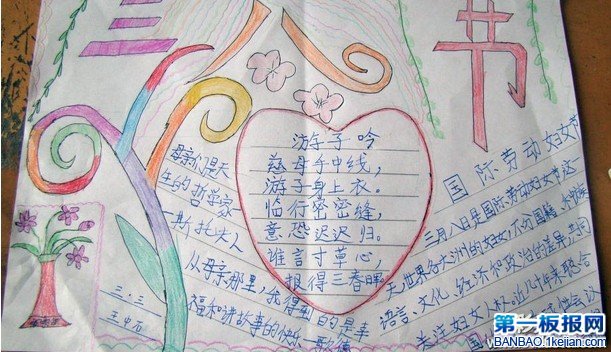 三八节
游子吟
慈母手中线，
游子身上衣。
临行密密缝，
意恐迟迟归。
谁言寸草心，
报得三春晖
母亲们是天
生的哲学家
斯托夫人
从母亲那里，我得到的是幸
福和讲故事的快乐 歌德
三.三
国际劳动妇女节
三月八日是国际劳动妇女节这一
天，世界各大洲的妇女，不分国籍
语言、文化、经济和政治的差异，共同
关注妇女人权。近几十年来联合
国
第一板报网
BANBAO.1kejian.com